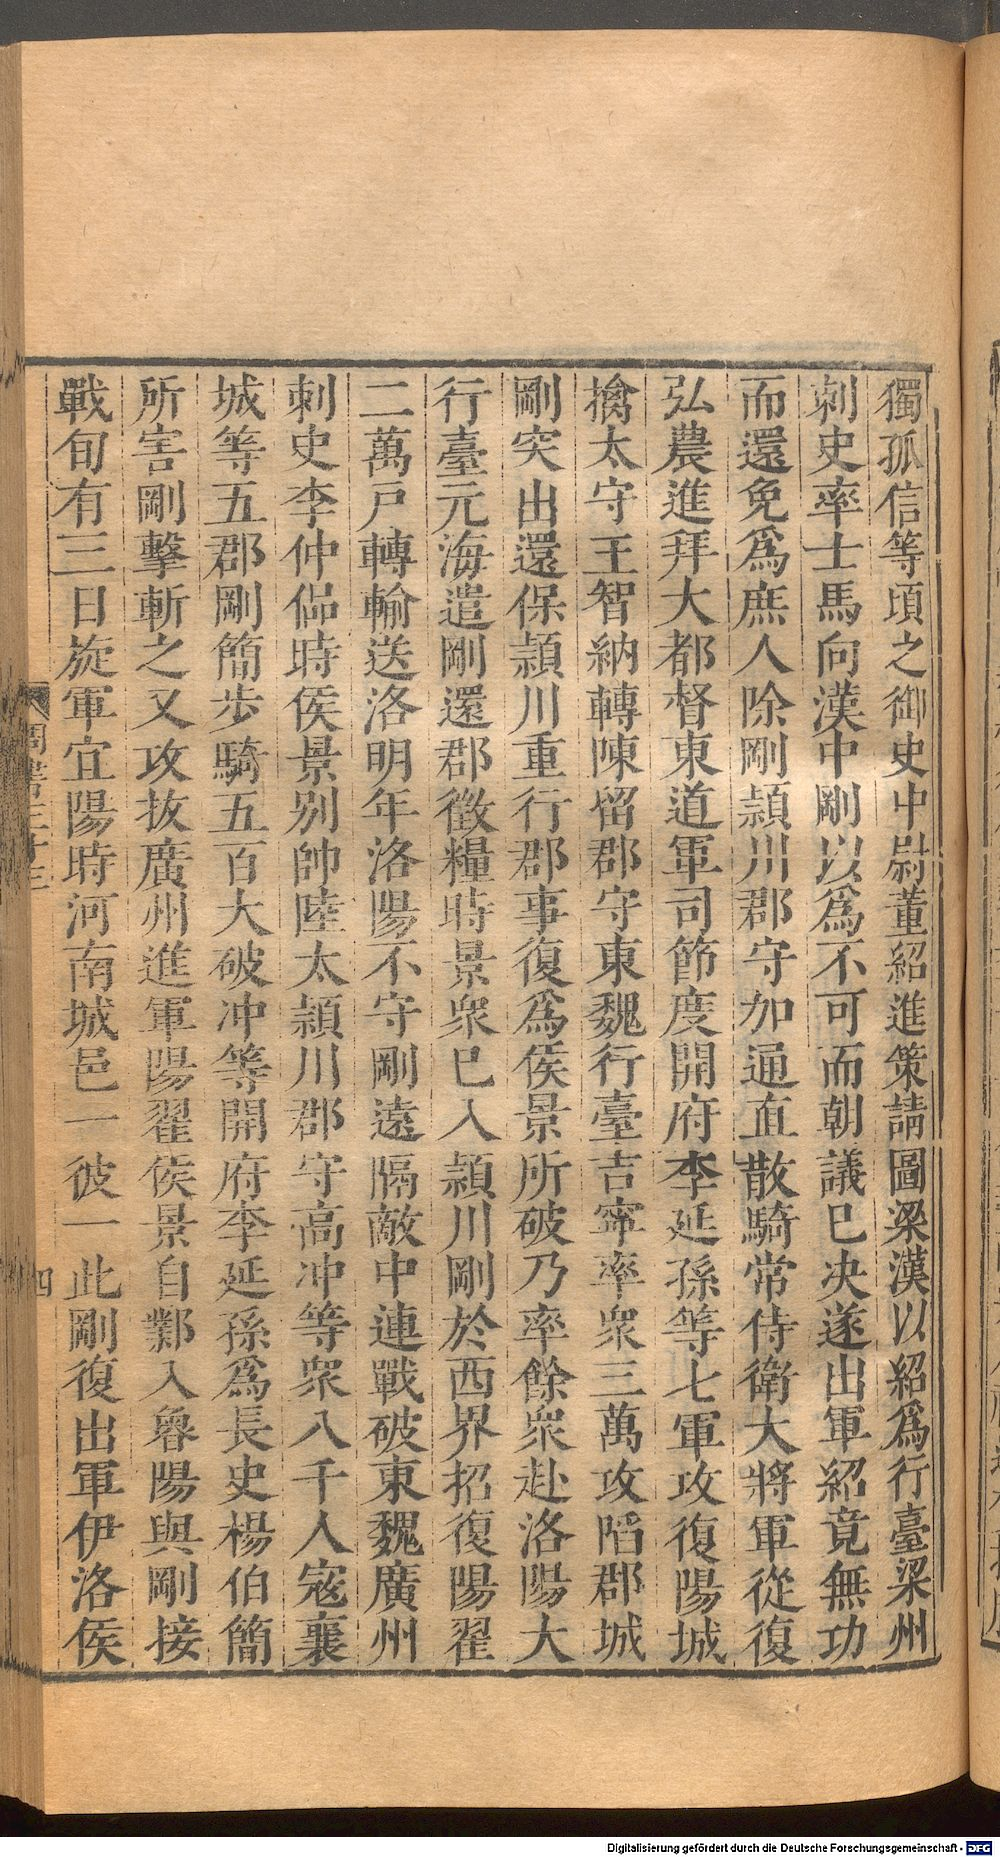 獨孤信等頃之御史中尉董紹進策請圖梁漢以紹爲行臺梁州
刺史率士馬向漢中剛以爲不可而朝議已決遂出軍紹竟無功
而還免爲庶人除剛潁川郡守加通直散騎常侍衛大將軍從復
弘農進拜大都督東道軍司節度開府李延孫等七軍攻復陽城
擒太守王智納轉陳留郡守東魏行臺吉寧率衆三萬攻陷郡城
剛突出還保潁川重行郡事復爲侯景所破乃率餘衆赴洛陽大
行臺元海遣剛還郡徵糧時景衆已入潁川剛於西界招復陽翟
二萬戸轉輸送洛明年洛陽不守剛遠隔敵中連戰破東魏廣州
刺史李仲侃時侯景別帥陸太潁川郡守高冲等衆八千人寇襄
城等五郡剛簡步騎五百大破冲等開府李延孫爲長史楊伯簡
所害剛擊斬之又攻拔廣州進軍陽翟侯景自鄴入魯陽與剛接
戰旬有三日旋軍宜陽時河南城邑一彼一此剛復出軍伊洛侯
周書三十三
四
Digitalisierung gefördert durch die Deutsche Forschungsgemeinschaft - DFG